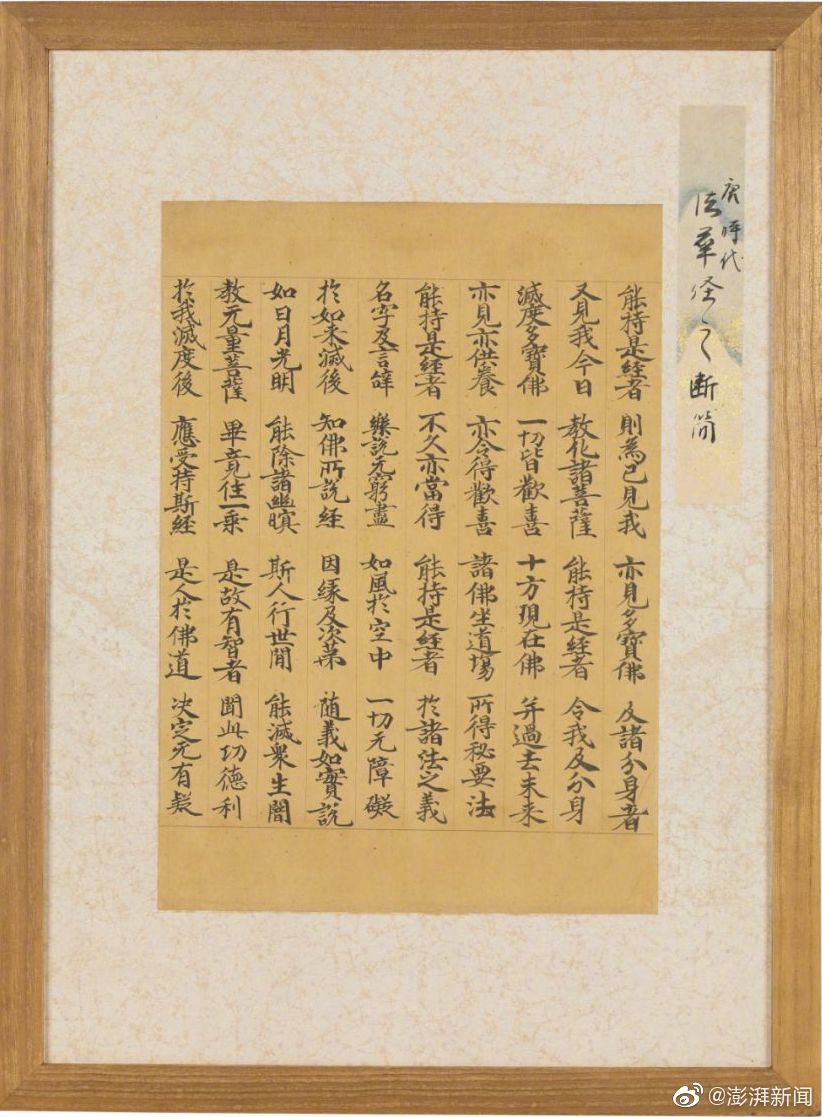 唐時代
法華経之断簡
能持是経者 則為已見我 亦見多寶佛 及諸分身者
又見我今日 教化諸菩薩 能持是経者 令我及分身
滅度多寶佛 一切皆歡喜 十方現在佛 并過去未来
亦見亦供養 亦令得歡喜 諸佛坐道場 所得秘要法
能持是経者 不久亦當得 能持是経者 於諸法之義
名字及言辤 樂說无窮盡 如風於空中 一切无障礙
於如来滅後 知佛所說経 因緣及次苐 随義如實說
如日月光明 能除諸幽暝 斯人行世間 能滅衆生闇
教无量菩薩 畢竟住一乗 是故有智者 聞此功德利
於我滅度後 應受持斯経 是人於佛道 决定无有疑
@澎湃新闻